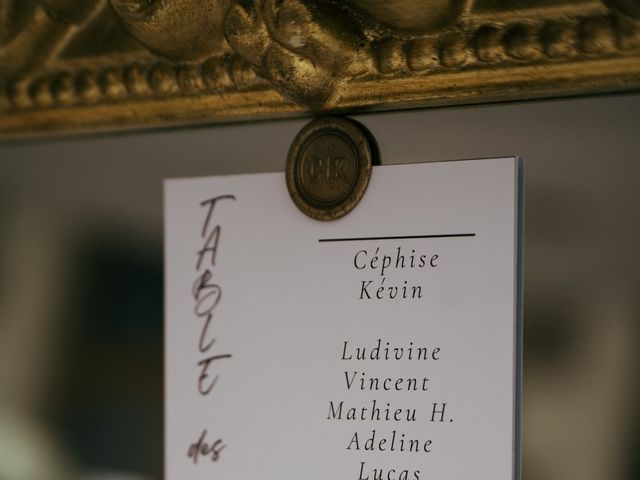 C|K
TABLE
des
Céphise
Kévin
Ludivine
Vincent
Mathieu H.
Adeline
Lucas